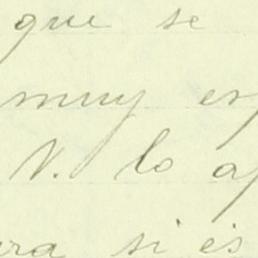 que se
muy es
V. lo a
ra si es